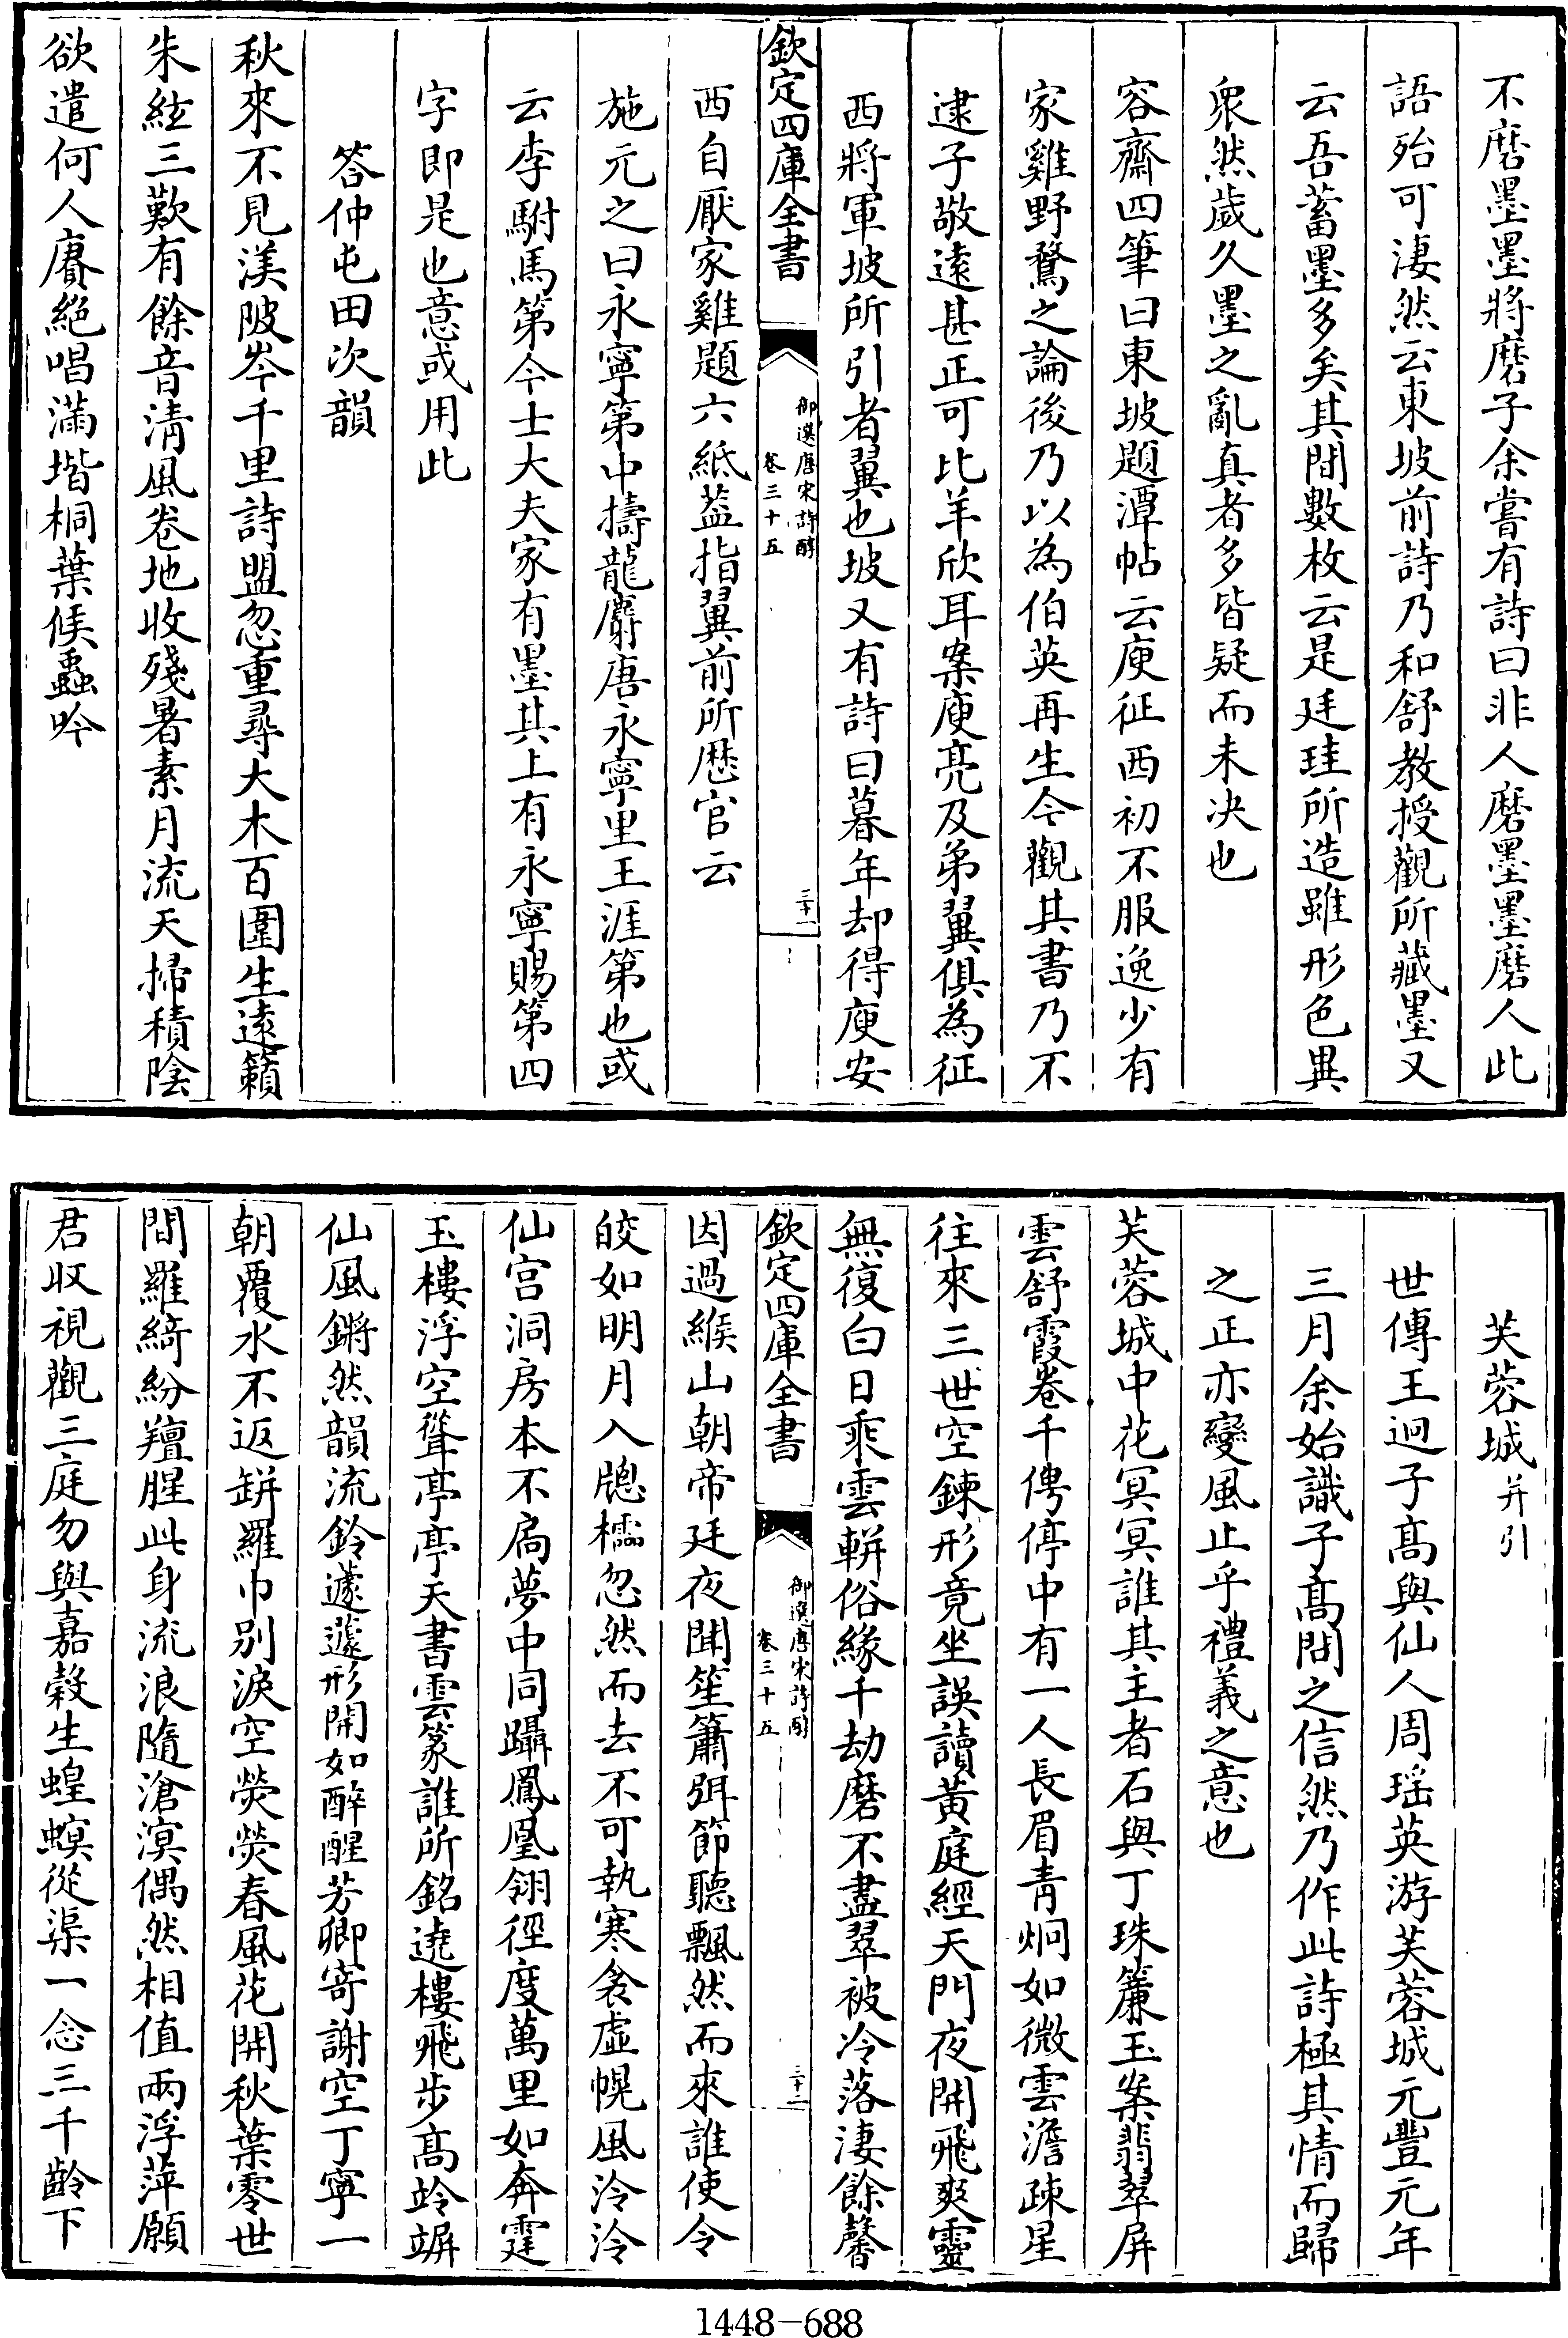 不磨墨墨將磨子余嘗有詩曰非人磨墨墨磨人此
語殆可淒然云東坡前詩乃和舒教授觀所藏墨又
云吾蓄墨多矣其間數枚云是廷珪所造雖形色異
衆然歲久墨之亂真者多皆疑而未決也
容齋四筆曰東坡題潭帖云庾征西初不服逸少有
家雞野鶩之論後乃以為伯英再生今觀其書乃不
逮子敬遠甚正可比羊欣耳案庾亮及弟翼俱為征
西將軍坡所引者翼也坡又有詩曰暮年却得庾安
欽定四庫全書
御選唐宋詩醇
卷三十五
三十一
西自厭家雞題六紙蓋指翼前所歴官云
施元之曰永寧第中擣龍麝唐永寧里王涯第也或
云李駙馬第今士大夫家有墨其上有永寧賜第四
字即是也意或用此
答仲屯田次韻
秋來不見渼陂岑千里詩盟忽重尋大木百圍生遠籟
朱絃三歎有餘音清風卷地收殘暑素月流天掃積陰
欲遣何人賡絕唱滿堦桐葉候蟲吟
芙蓉城并引
世傳王迥子高與仙人周瑶英游芙蓉城元豐元年
三月余始識子高問之信然乃作此詩極其情而歸
之正亦變風止乎禮義之意也
芙蓉城中花冥冥誰其主者石與丁珠簾玉案翡翠屏
雲舒霞卷千俜停中有一人長眉青炯如微雲澹疎星
往來三世空鍊形竟坐誤讀黃庭經天門夜開飛爽靈
無復白日乘雲軿俗緣千劫磨不盡翠被冷落淒餘馨
欽定四庫全書
御選唐宋詩醇
卷三十五
三十二
因過緱山朝帝廷夜聞笙簫弭節聽飄然而來誰使令
皎如明月入牕櫺忽然而去不可執寒衾虛幌風泠泠
仙宮洞房本不扃夢中同躡鳳凰翎徑度萬里如奔霆
玉樓浮空聳亭亭天書雲篆誰所銘遶樓飛步高竛竮
仙風鏘然韻流鈴蘧蘧形開如醉醒芳卿寄謝空丁寧一
朝覆水不返缾羅巾別淚空熒熒春風花開秋葉零世
間羅綺紛羶腥此身流浪隨滄溟偶然相值兩浮萍願
君收視觀三庭勿與嘉穀生蝗螟從渠一念三千齡下
1448-688